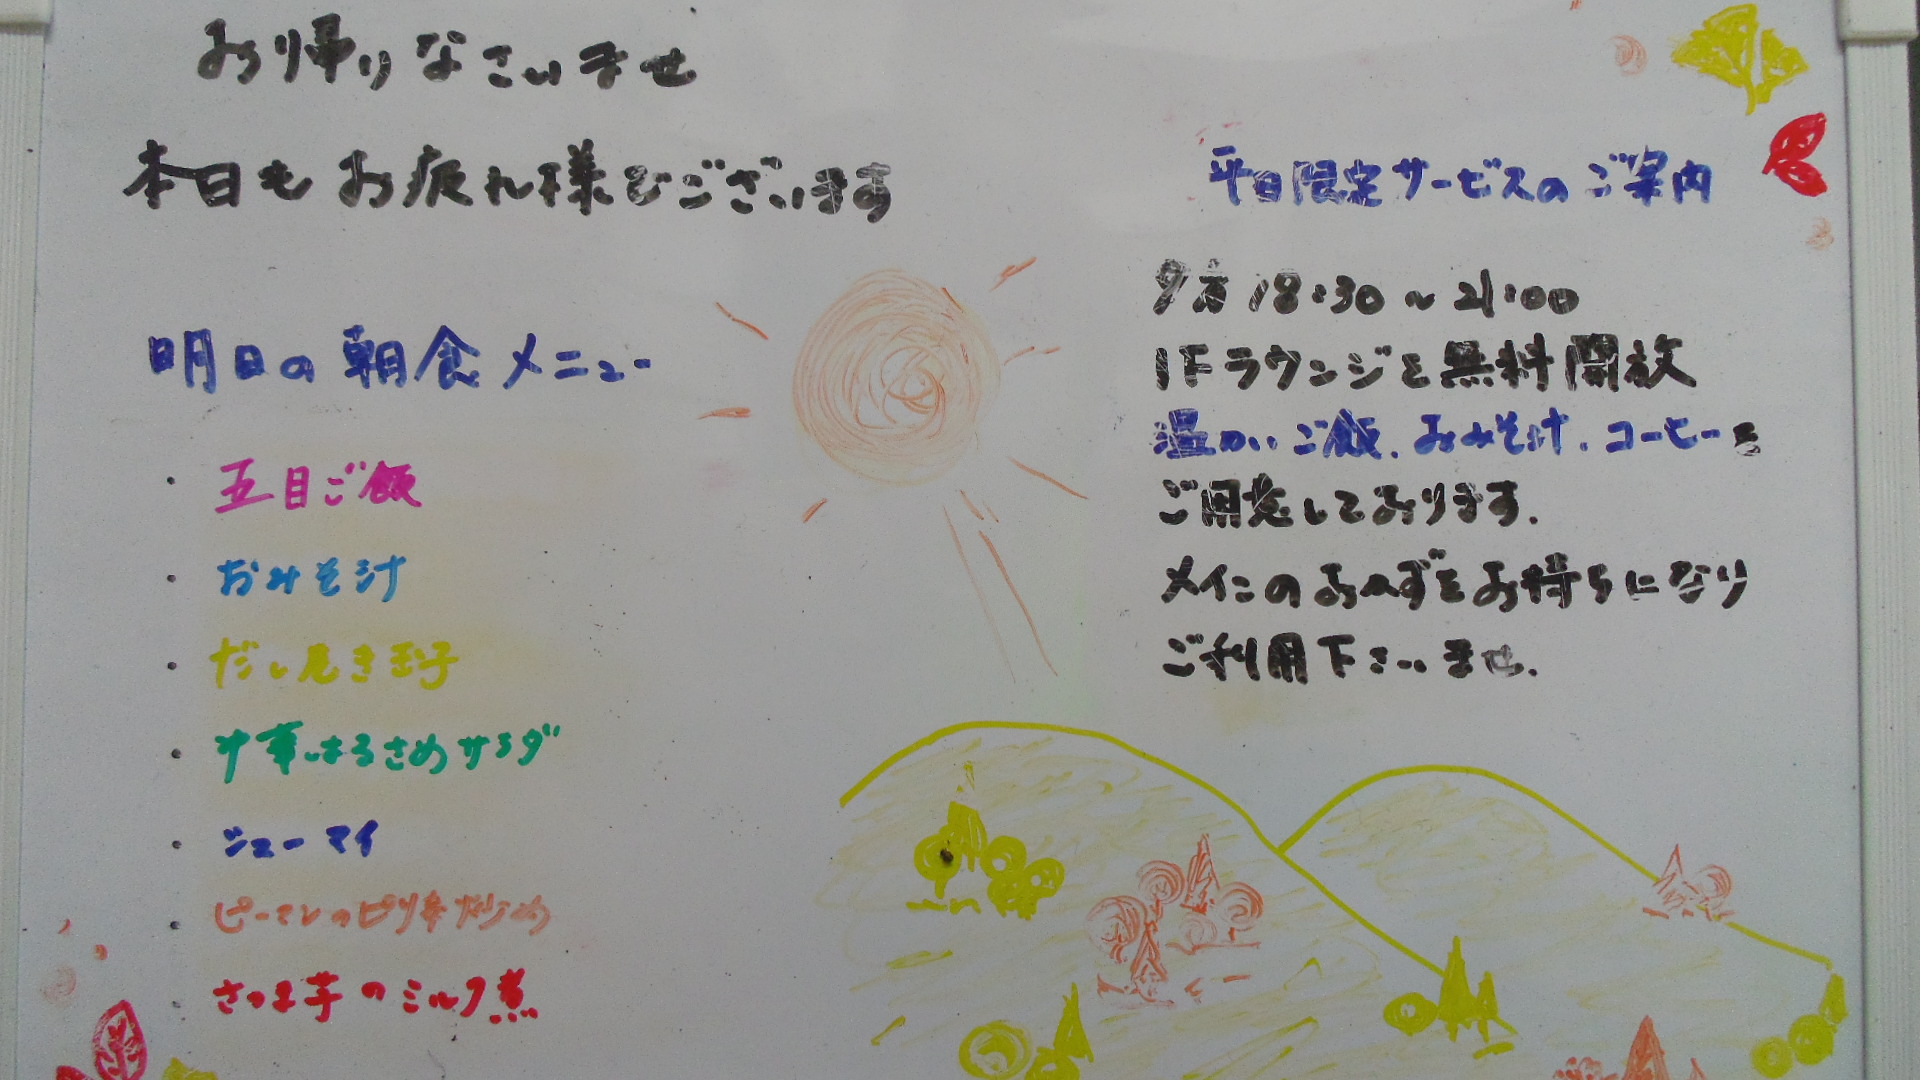 お帰りなさいませ
本日もお疲れ様でございます
明日の朝食メニュー
・五目ご飯
・おみそ汁
・だし巻き玉子
・中華はるさめサラダ
・シューマイ
・ピーマンのピリ辛炒め
・さつま芋のミルク煮
平日限定サービスのご案内
夕方18:30~21:00
1Fラウンジを無料開放
温かいご飯、おみそ汁、コーヒーを
ご用意しております。
メインのおかずをお持ちになり
ご利用下さいませ。